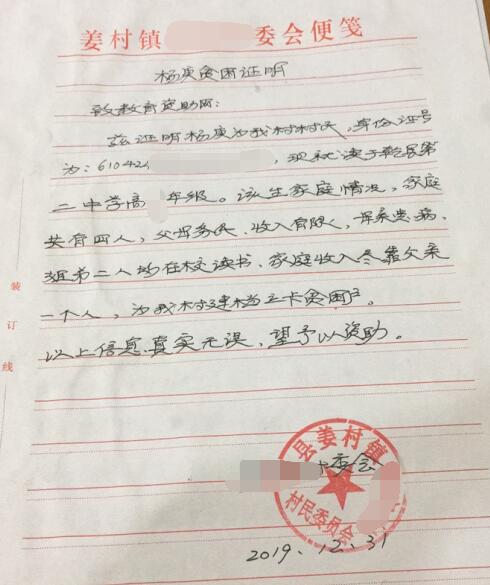 姜村镇 委会便笺
杨庚贫困证明
致教育资助网：
兹证明杨庚为我村村民，身份证号
为：61042 ，现就读于乾县第
二中学高 年级。该生家庭情况，家庭
共有四人，父母务农，收入有限，母亲患病，
姐弟二人均在校读书，家庭收入尽靠父亲
一个人，为我村建档立卡贫困户。
以上信息真实无误，望予以资助。
装
订
线
县姜村镇
委会
村民委员会
2019.12.31